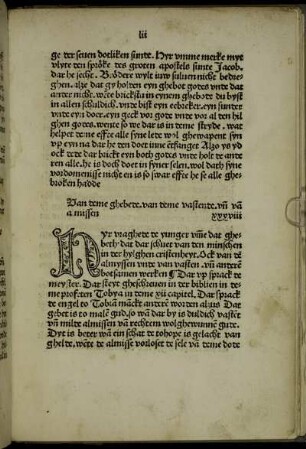 lii
ge ter seuen dotliken sunte. Hyr vmme merke myt
vlyte ten sprőke tes groten apostels sunte Jacob.
dar he secht. Brődere wylt iuw suluen nicht bedreghen
alze dat gy holten eyn ghebot gotes vnde dat
ander nicht. wēte brickstu in eynem ghebote du byst
in allen schuldich. vnde bist eyn eebreker. eyn sunter
vnde eyn doer. eyn geck vor gote vnde vor al ten hilghen
gotes. wente so we dar is in teme stryde. wat
helpet teme effte alle syne lete wol ghewapent syn
vp eyn na dar he ten doet inne entfanget Also ys yd
ock te te dar brickt eyn both gotes vnde holt te andere
alle. he is doch in syner selen. wol dath syne
vordomenisse nicht en is so swar effte he se alle ghebroken
hadde
Van teme ghebete. van teme vastende. vn vā
a missen
xxxviii
Nyr vraghete te yunger vm̄e dat ghebeth.
dat dar schuet van ten minschen
in ter hylghen cristenheyt. Ock van te
almyssen vnde van vasten. vn̄ anderē
botsamen werken ¶ Dar vp sprack te
meyster. Dat steyt ghescreuen in ter biblien in teme
profeten Tobya in teme xii capitel. Dar sprack
te engel to Tobia māckt anderē worden aldus Dat
gebet is to malē gud. so wā dar by is duldich vastēt
vn̄ milde almissen vā rechtem wolghewunnē gude.
Dyt is beter wā ein schat te tohope is gelacht van
ghelde. wēte te almisse vorloset te sele vā teme dote